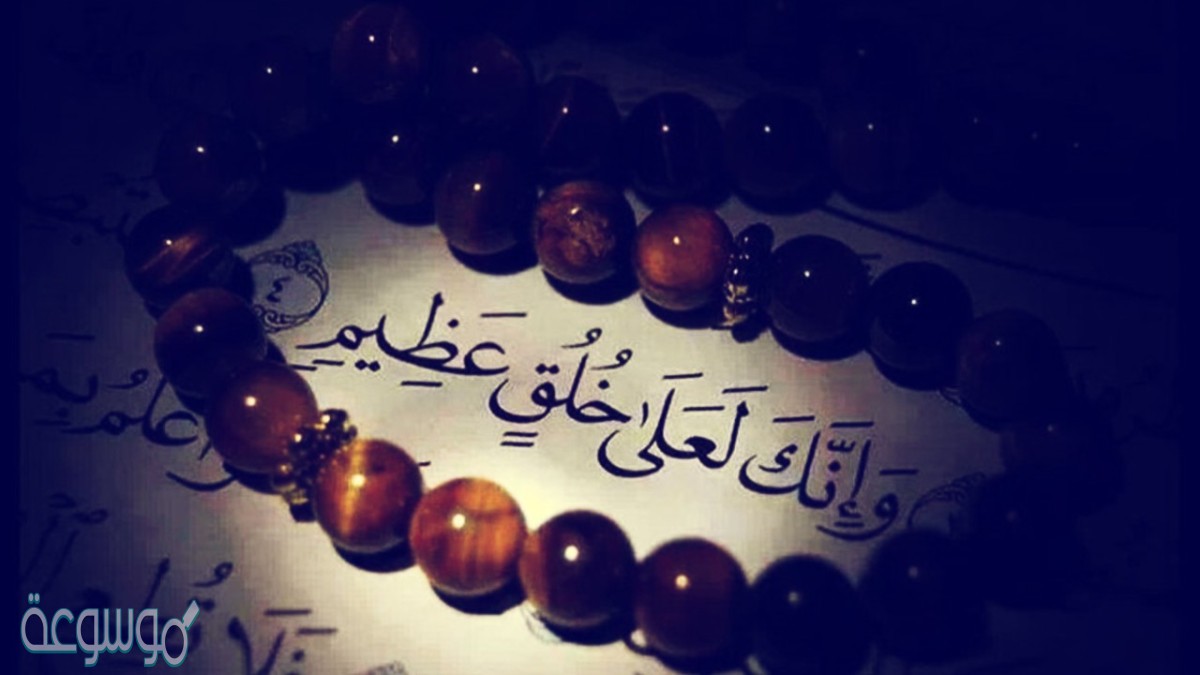 وَإِنَّكَ لَعَلَىٰ خُلُقٍ عَظِيمٍ ٤
أَعْلَمُ بِمَ
موسوعة